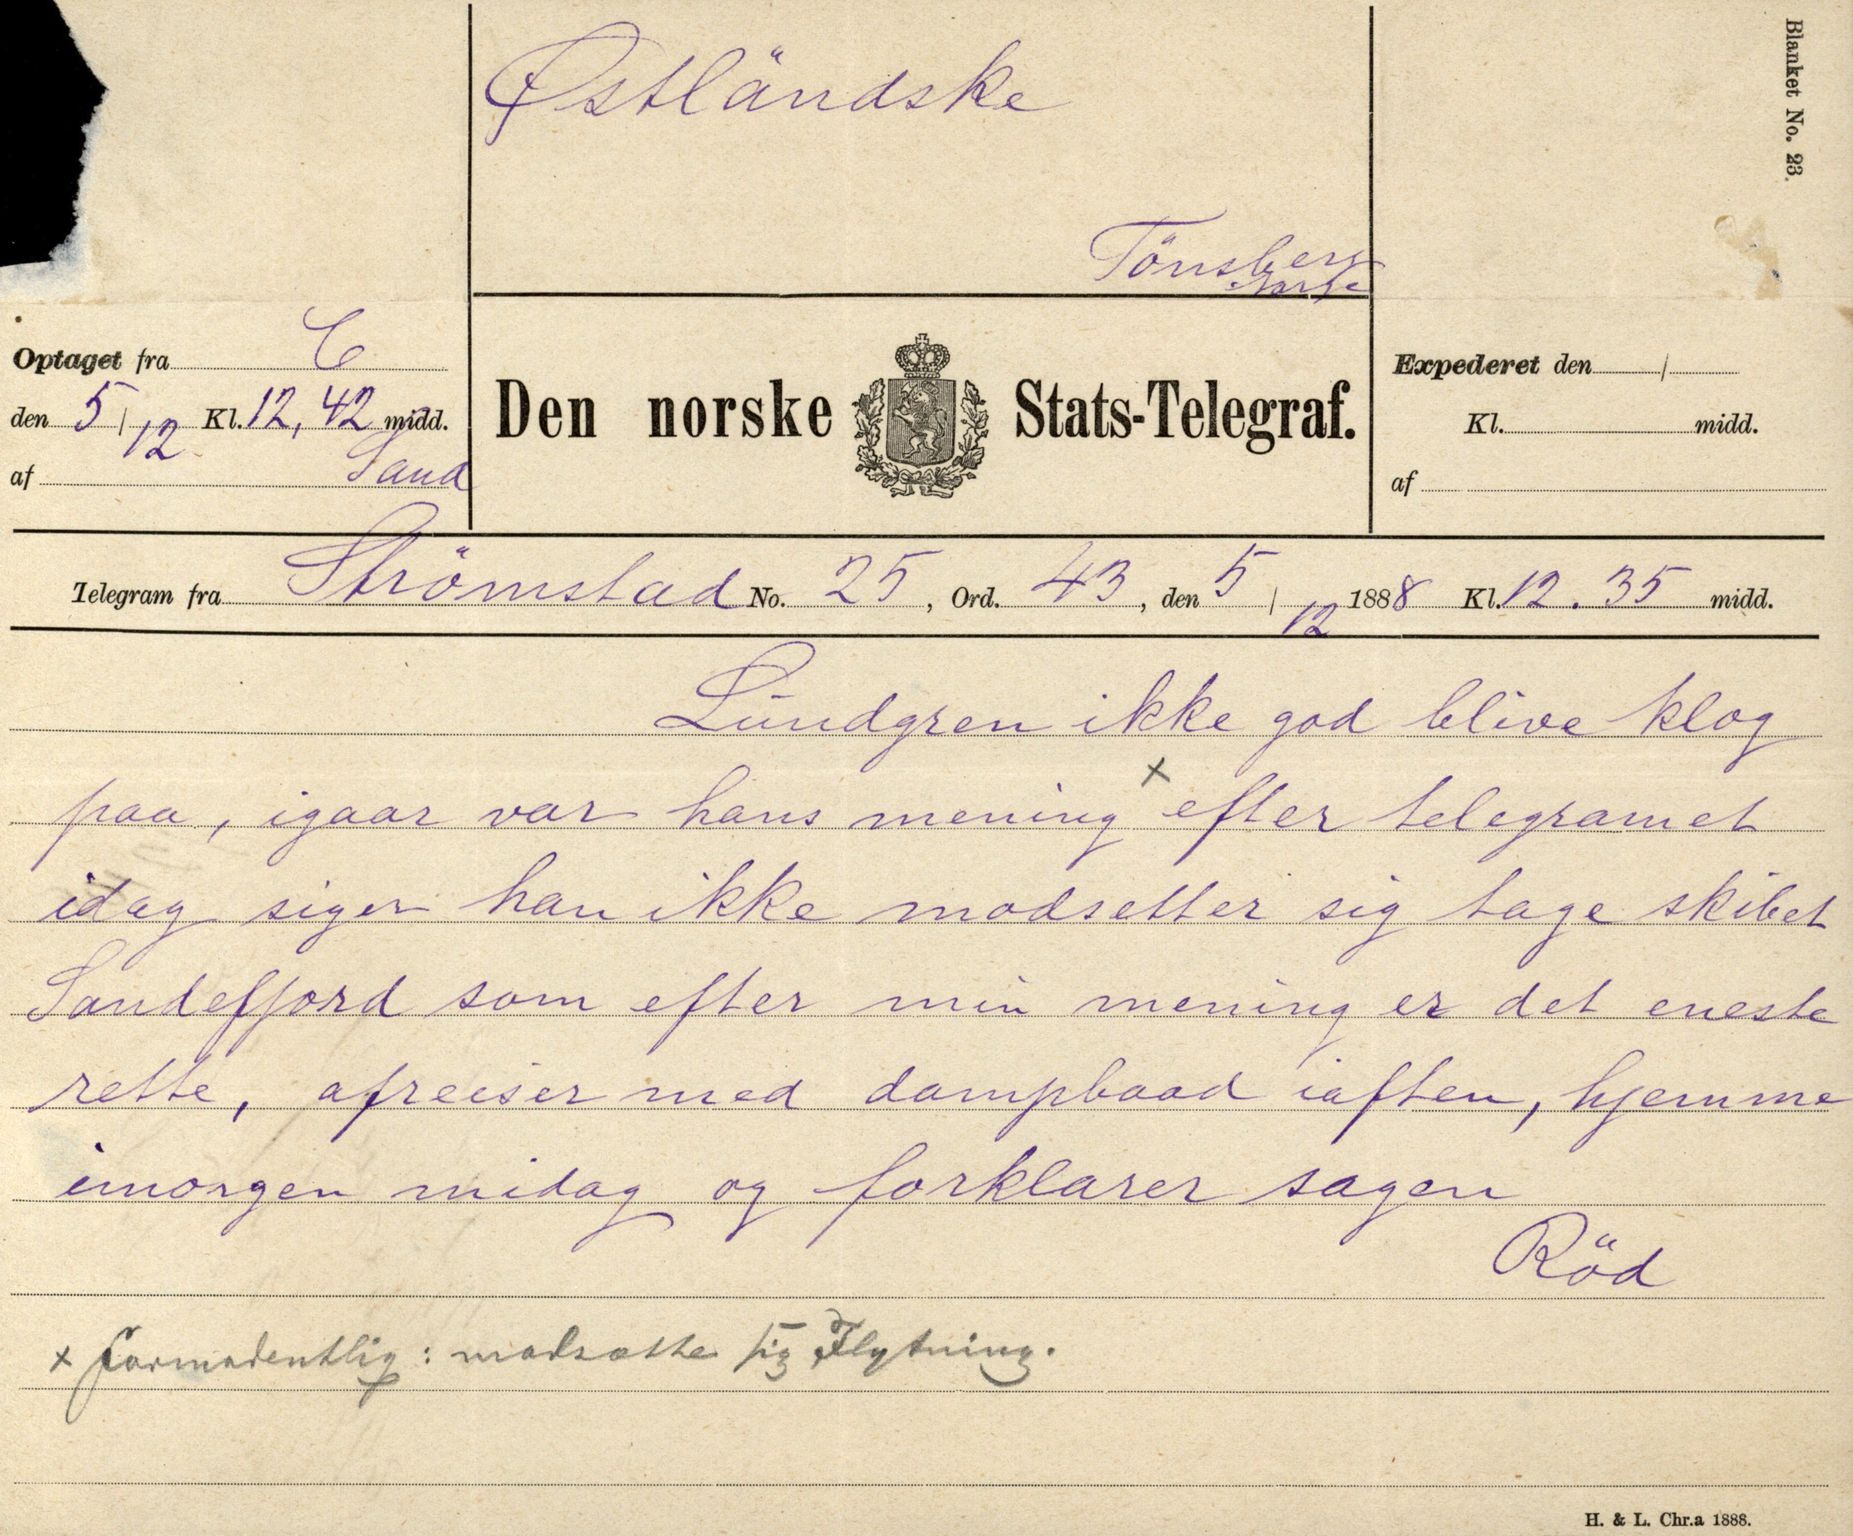 Blanket No. 23.
Östländske
Tönsberg
Norge
Optaget fra C
den 5/12 Kl. 12,42 midd.
af Sand
Den norske Stats-Telegraf.
Expederet den /
Kl. midd.
af
Telegram fra Strömstad No. 25, Ord. 43, den 5/12 1888 Kl. 12.35 midd.
Lundgren ikke god blive klog
paa, igaar var hans mening x efter telegramet
idag siger han ikke modsetter sig tage skibet
Sandefjord som efter min mening er det eneste
rette, afreiser med dampbaad iaften, hjemme
imorgen midag og forklarer sagen
Röd
x formodentlig: modsætte sig Flytning.
H. & L. Chr.a 1888.